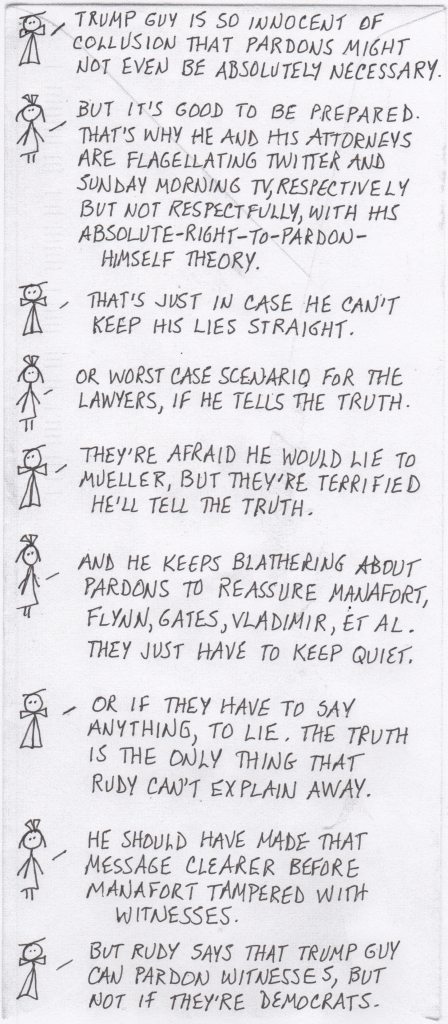 TRUMP GUY IS SO INNOCENT OF
COLLUSION THAT PARDONS MIGHT
NOT EVEN BE ABSOLUTELY NECESSARY.
BUT IT'S GOOD TO BE PREPARED.
THAT'S WHY HE AND HIS ATTORNEYS
ARE FLAGELLATING TWITTER AND
SUNDAY MORNING TV, RESPECTIVELY
BUT NOT RESPECTFULLY, WITH HIS
ABSOLUTE-RIGHT-TO-PARDON-
HIMSELF THEORY.
THAT'S JUST IN CASE HE CAN'T
KEEP HIS LIES STRAIGHT.
OR WORST CASE SCENARIO FOR THE
LAWYERS, IF HE TELLS THE TRUTH.
THEY'RE AFRAID HE WOULD LIE TO
MUELLER, BUT THEY'RE TERRIFIED
HE'LL TELL THE TRUTH.
AND HE KEEPS BLATHERING ABOUT
PARDONS TO REASSURE MANAFORT,
FLYNN, GATES, VLADIMIR, ET AL.
THEY JUST HAVE TO KEEP QUIET.
OR IF THEY HAVE TO SAY
ANYTHING, TO LIE. THE TRUTH
IS THE ONLY THING THAT
RUDY CAN'T EXPLAIN AWAY.
HE SHOULD HAVE MADE THAT
MESSAGE CLEARER BEFORE
MANAFORT TAMPERED WITH
WITNESSES.
BUT RUDY SAYS THAT TRUMP GUY
CAN PARDON WITNESSES, BUT
NOT IF THEY'RE DEMOCRATS.